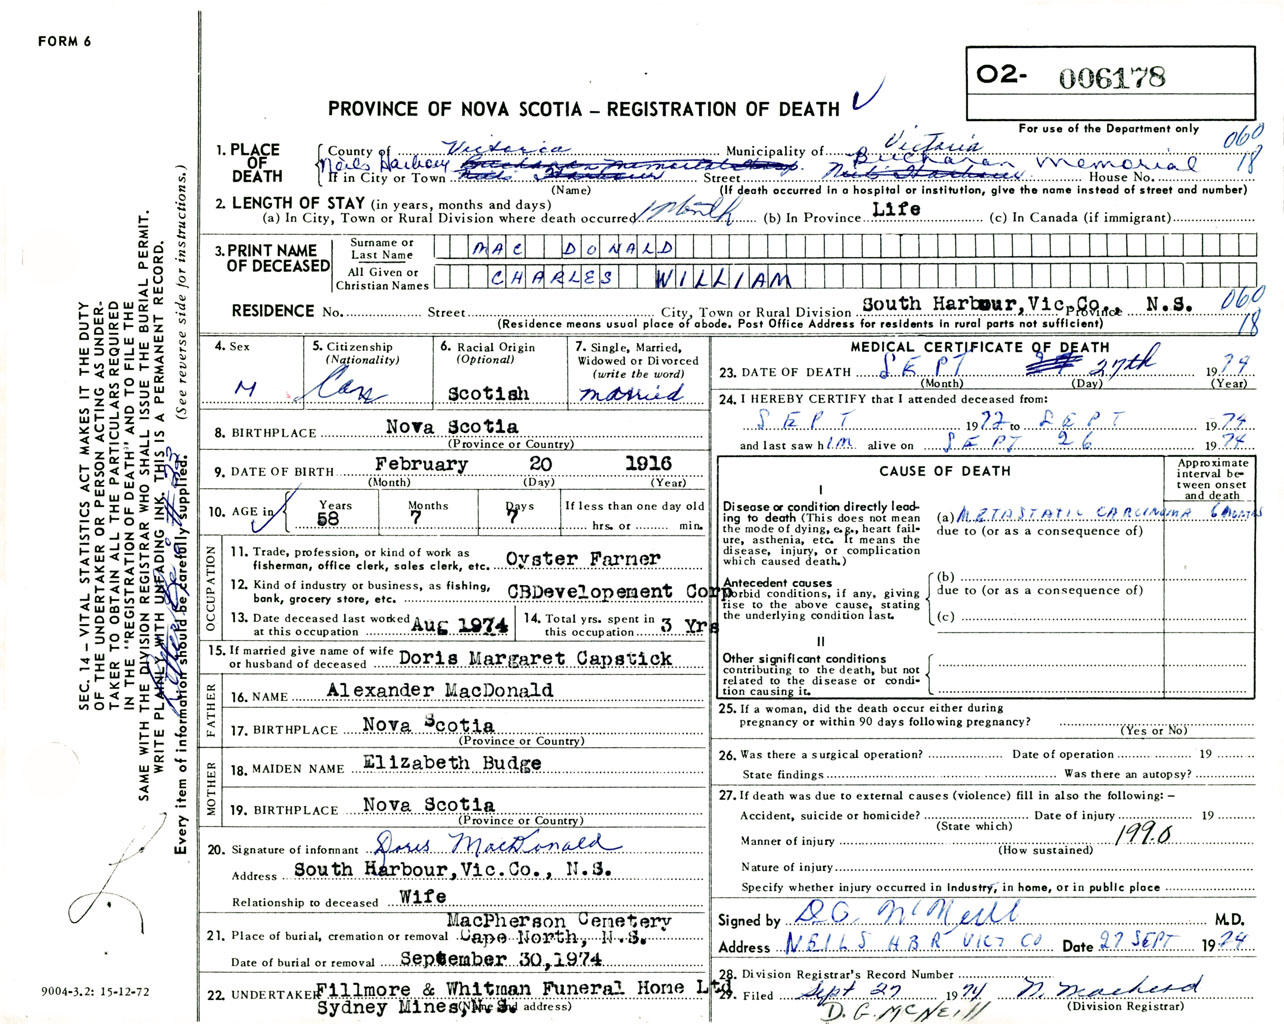 FORM 6
O2- 006178
PROVINCE OF NOVA SCOTIA – REGISTRATION OF DEATH
For use of the Department only
060
18
1. PLACE OF DEATH
County of Victoria Municipality of Victoria
Neils Harbour Buchanan Memorial
If in City or Town Street House No.
(Name) (If death occurred in a hospital or institution, give the name instead of street and number)
2. LENGTH OF STAY (in years, months and days)
(a) In City, Town or Rural Division where death occurred 1 Month (b) In Province Life (c) In Canada (if immigrant)
3. PRINT NAME OF DECEASED
Surname or Last Name MAC DONALD
All Given or Christian Names CHARLES WILLIAM
RESIDENCE No. Street City, Town or Rural Division South Harbour, Vic.Co., Province N.S.
(Residence means usual place of abode. Post Office Address for residents in rural parts not sufficient)
060
18
4. Sex M
5. Citizenship (Nationality) Can
6. Racial Origin (Optional) Scotish
7. Single, Married, Widowed or Divorced (write the word) married
8. BIRTHPLACE Nova Scotia
(Province or Country)
9. DATE OF BIRTH February 20 1916
(Month) (Day) (Year)
10. AGE in Years 58 Months 7 Days 7 If less than one day old hrs. or min.
OCCUPATION
11. Trade, profession, or kind of work as fisherman, office clerk, sales clerk, etc. Oyster Farmer
12. Kind of industry or business, as fishing, bank, grocery store, etc. CBDevelopement Corp
13. Date deceased last worked at this occupation Aug 1974
14. Total yrs. spent in this occupation 3 Yrs
15. If married give name of wife or husband of deceased Doris Margaret Capstick
FATHER
16. NAME Alexander MacDonald
17. BIRTHPLACE Nova Scotia
(Province or Country)
MOTHER
18. MAIDEN NAME Elizabeth Budge
19. BIRTHPLACE Nova Scotia
(Province or Country)
20. Signature of informant Doris MacDonald
Address South Harbour,Vic.Co., N.S.
Relationship to deceased Wife
MacPherson Cemetery
21. Place of burial, cremation or removal Cape North, N.S.
Date of burial or removal September 30,1974
22. UNDERTAKER Fillmore & Whitman Funeral Home Ltd
Sydney Mines, N.S. (Name and address)
MEDICAL CERTIFICATE OF DEATH
23. DATE OF DEATH SEPT 27th 1974
(Month) (Day) (Year)
24. I HEREBY CERTIFY that I attended deceased from:
SEPT 1972 to SEPT 1974
and last saw him alive on SEPT 26 1974
CAUSE OF DEATH
Approximate interval between onset and death
I
Disease or condition directly leading to death (This does not mean the mode of dying, e.g., heart failure, asthenia, etc. It means the disease, injury, or complication which caused death.)
(a) METASTATIC CARCINOMA 6 MONTHS
due to (or as a consequence of)
Antecedent causes
Morbid conditions, if any, giving rise to the above cause, stating the underlying condition last.
(b)
due to (or as a consequence of)
(c)
II
Other significant conditions contributing to the death, but not related to the disease or condition causing it.
25. If a woman, did the death occur either during pregnancy or within 90 days following pregnancy?
(Yes or No)
26. Was there a surgical operation? Date of operation 19
State findings Was there an autopsy?
27. If death was due to external causes (violence) fill in also the following: –
Accident, suicide or homicide? Date of injury 19
(State which)
Manner of injury 199.0
(How sustained)
Nature of injury
Specify whether injury occurred in Industry, in home, or in public place
Signed by D.G. McNeill M.D.
Address NEILS HBR VICT CO Date 27 SEPT 1974
28. Division Registrar's Record Number
29. Filed Sept 27 1974
(Division Registrar)
D. G. MCNEILL
SEC. 14 – VITAL STATISTICS ACT MAKES IT THE DUTY
OF THE UNDERTAKER OR PERSON ACTING AS UNDER-
TAKER TO OBTAIN ALL THE PARTICULARS REQUIRED
IN THE "REGISTRATION OF DEATH" AND TO FILE THE
SAME WITH THE DIVISION REGISTRAR WHO SHALL ISSUE THE BURIAL PERMIT.
WRITE PLAINLY WITH UNFADING INK. THIS IS A PERMANENT RECORD.
Every item of information should be carefully supplied. (See reverse side for instructions.)
9004-3.2: 15-12-72